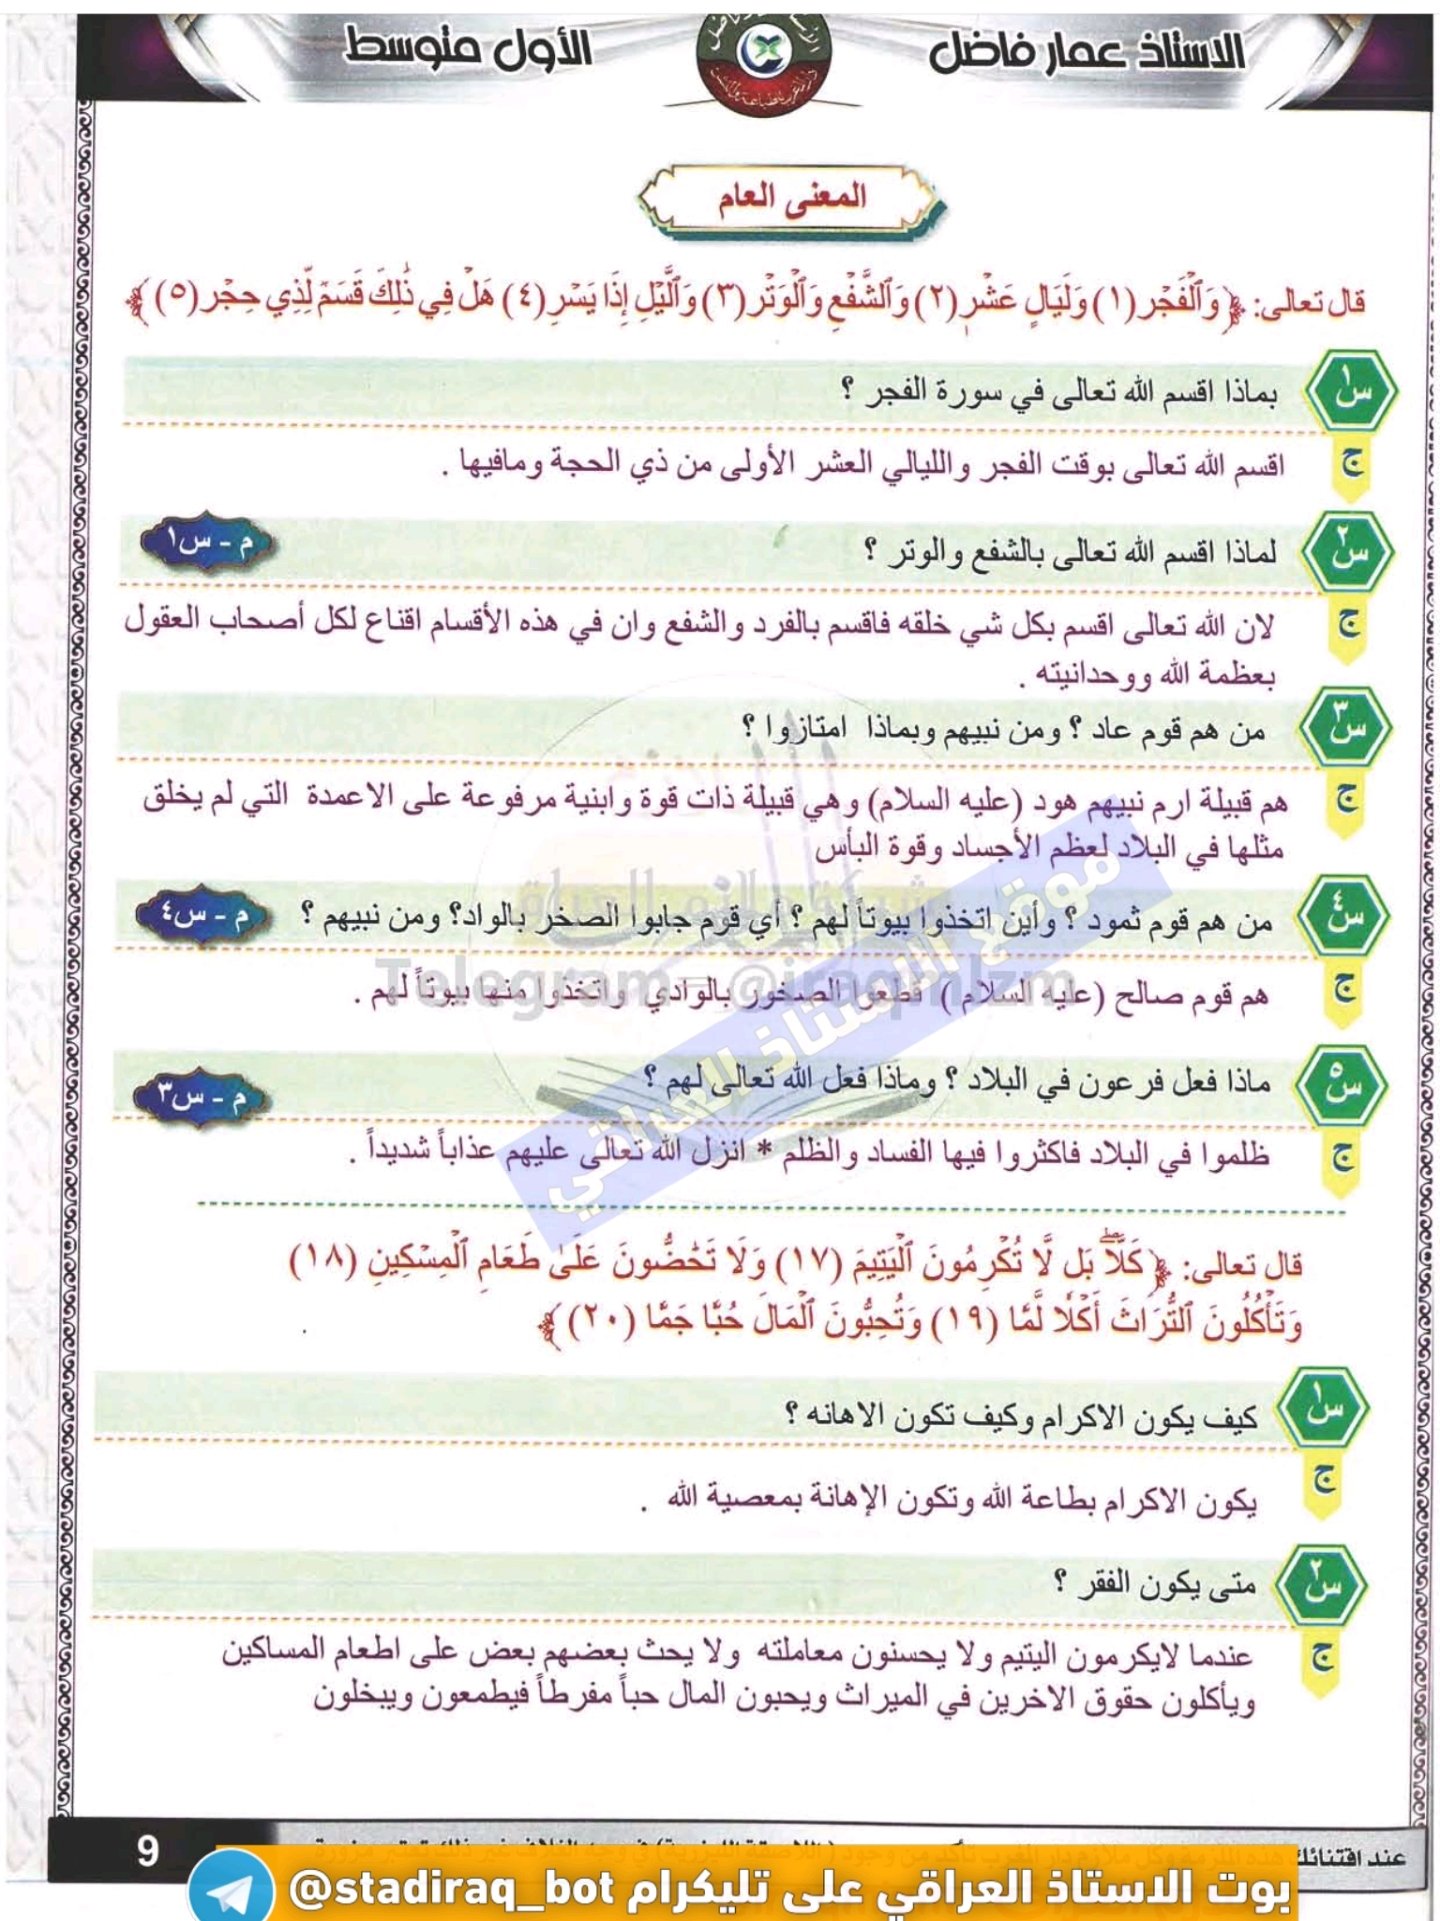 الاستاذ عمار فاضل
الأول متوسط
المعنى العام
قال تعالى: ﴿ وَٱلۡفَجۡرِ (١) وَلَيَالٍ عَشۡرٖ (٢) وَٱلشَّفۡعِ وَٱلۡوَتۡرِ (٣) وَٱلَّيۡلِ إِذَا يَسۡرِ (٤) هَلۡ فِي ذَٰلِكَ قَسَمٞ لِّذِي حِجۡرٍ (٥) ﴾
س١ بماذا اقسم الله تعالى في سورة الفجر ؟
ج اقسم الله تعالى بوقت الفجر والليالي العشر الأولى من ذي الحجة ومافيها .
س٢ لماذا اقسم الله تعالى بالشفع والوتر ؟ م - س١
ج لان الله تعالى اقسم بكل شي خلقه فاقسم بالفرد والشفع وان في هذه الأقسام اقناع لكل أصحاب العقول
بعظمة الله ووحدانيته .
س٣ من هم قوم عاد ؟ ومن نبيهم وبماذا امتازوا ؟
ج هم قبيلة ارم نبيهم هود (عليه السلام) وهي قبيلة ذات قوة وابنية مرفوعة على الاعمدة التي لم يخلق
مثلها في البلاد لعظم الأجساد وقوة البأس
س٤ من هم قوم ثمود ؟ وأين اتخذوا بيوتاً لهم ؟ أي قوم جابوا الصخر بالواد؟ ومن نبيهم ؟ م - س٤
Telegram - @iraqmlzm
ج هم قوم صالح (عليه السلام ) قطعوا الصخور بالوادي واتخذوا منها بيوتاً لهم .
س٥ ماذا فعل فرعون في البلاد ؟ وماذا فعل الله تعالى لهم ؟ م - س٣
ج ظلموا في البلاد فاكثروا فيها الفساد والظلم * انزل الله تعالى عليهم عذاباً شديداً .
موقع الاستاذ العراقي
قال تعالى: ﴿ كَلَّاۖ بَل لَّا تُكۡرِمُونَ ٱلۡيَتِيمَ (١٧) وَلَا تَحَٰٓضُّونَ عَلَىٰ طَعَامِ ٱلۡمِسۡكِينِ (١٨)
وَتَأۡكُلُونَ ٱلتُّرَاثَ أَكۡلٗا لَّمّٗا (١٩) وَتُحِبُّونَ ٱلۡمَالَ حُبّٗا جَمّٗا (٢٠) ﴾
س١ كيف يكون الاكرام وكيف تكون الاهانه ؟
ج يكون الاكرام بطاعة الله وتكون الإهانة بمعصية الله .
س٢ متى يكون الفقر ؟
ج عندما لايكرمون اليتيم ولا يحسنون معاملته ولا يحث بعضهم بعض على اطعام المساكين
ويأكلون حقوق الاخرين في الميراث ويحبون المال حباً مفرطاً فيطمعون ويبخلون
عند اقتنائك
9
بوت الاستاذ العراقي على تليكرام @stadiraq_bot